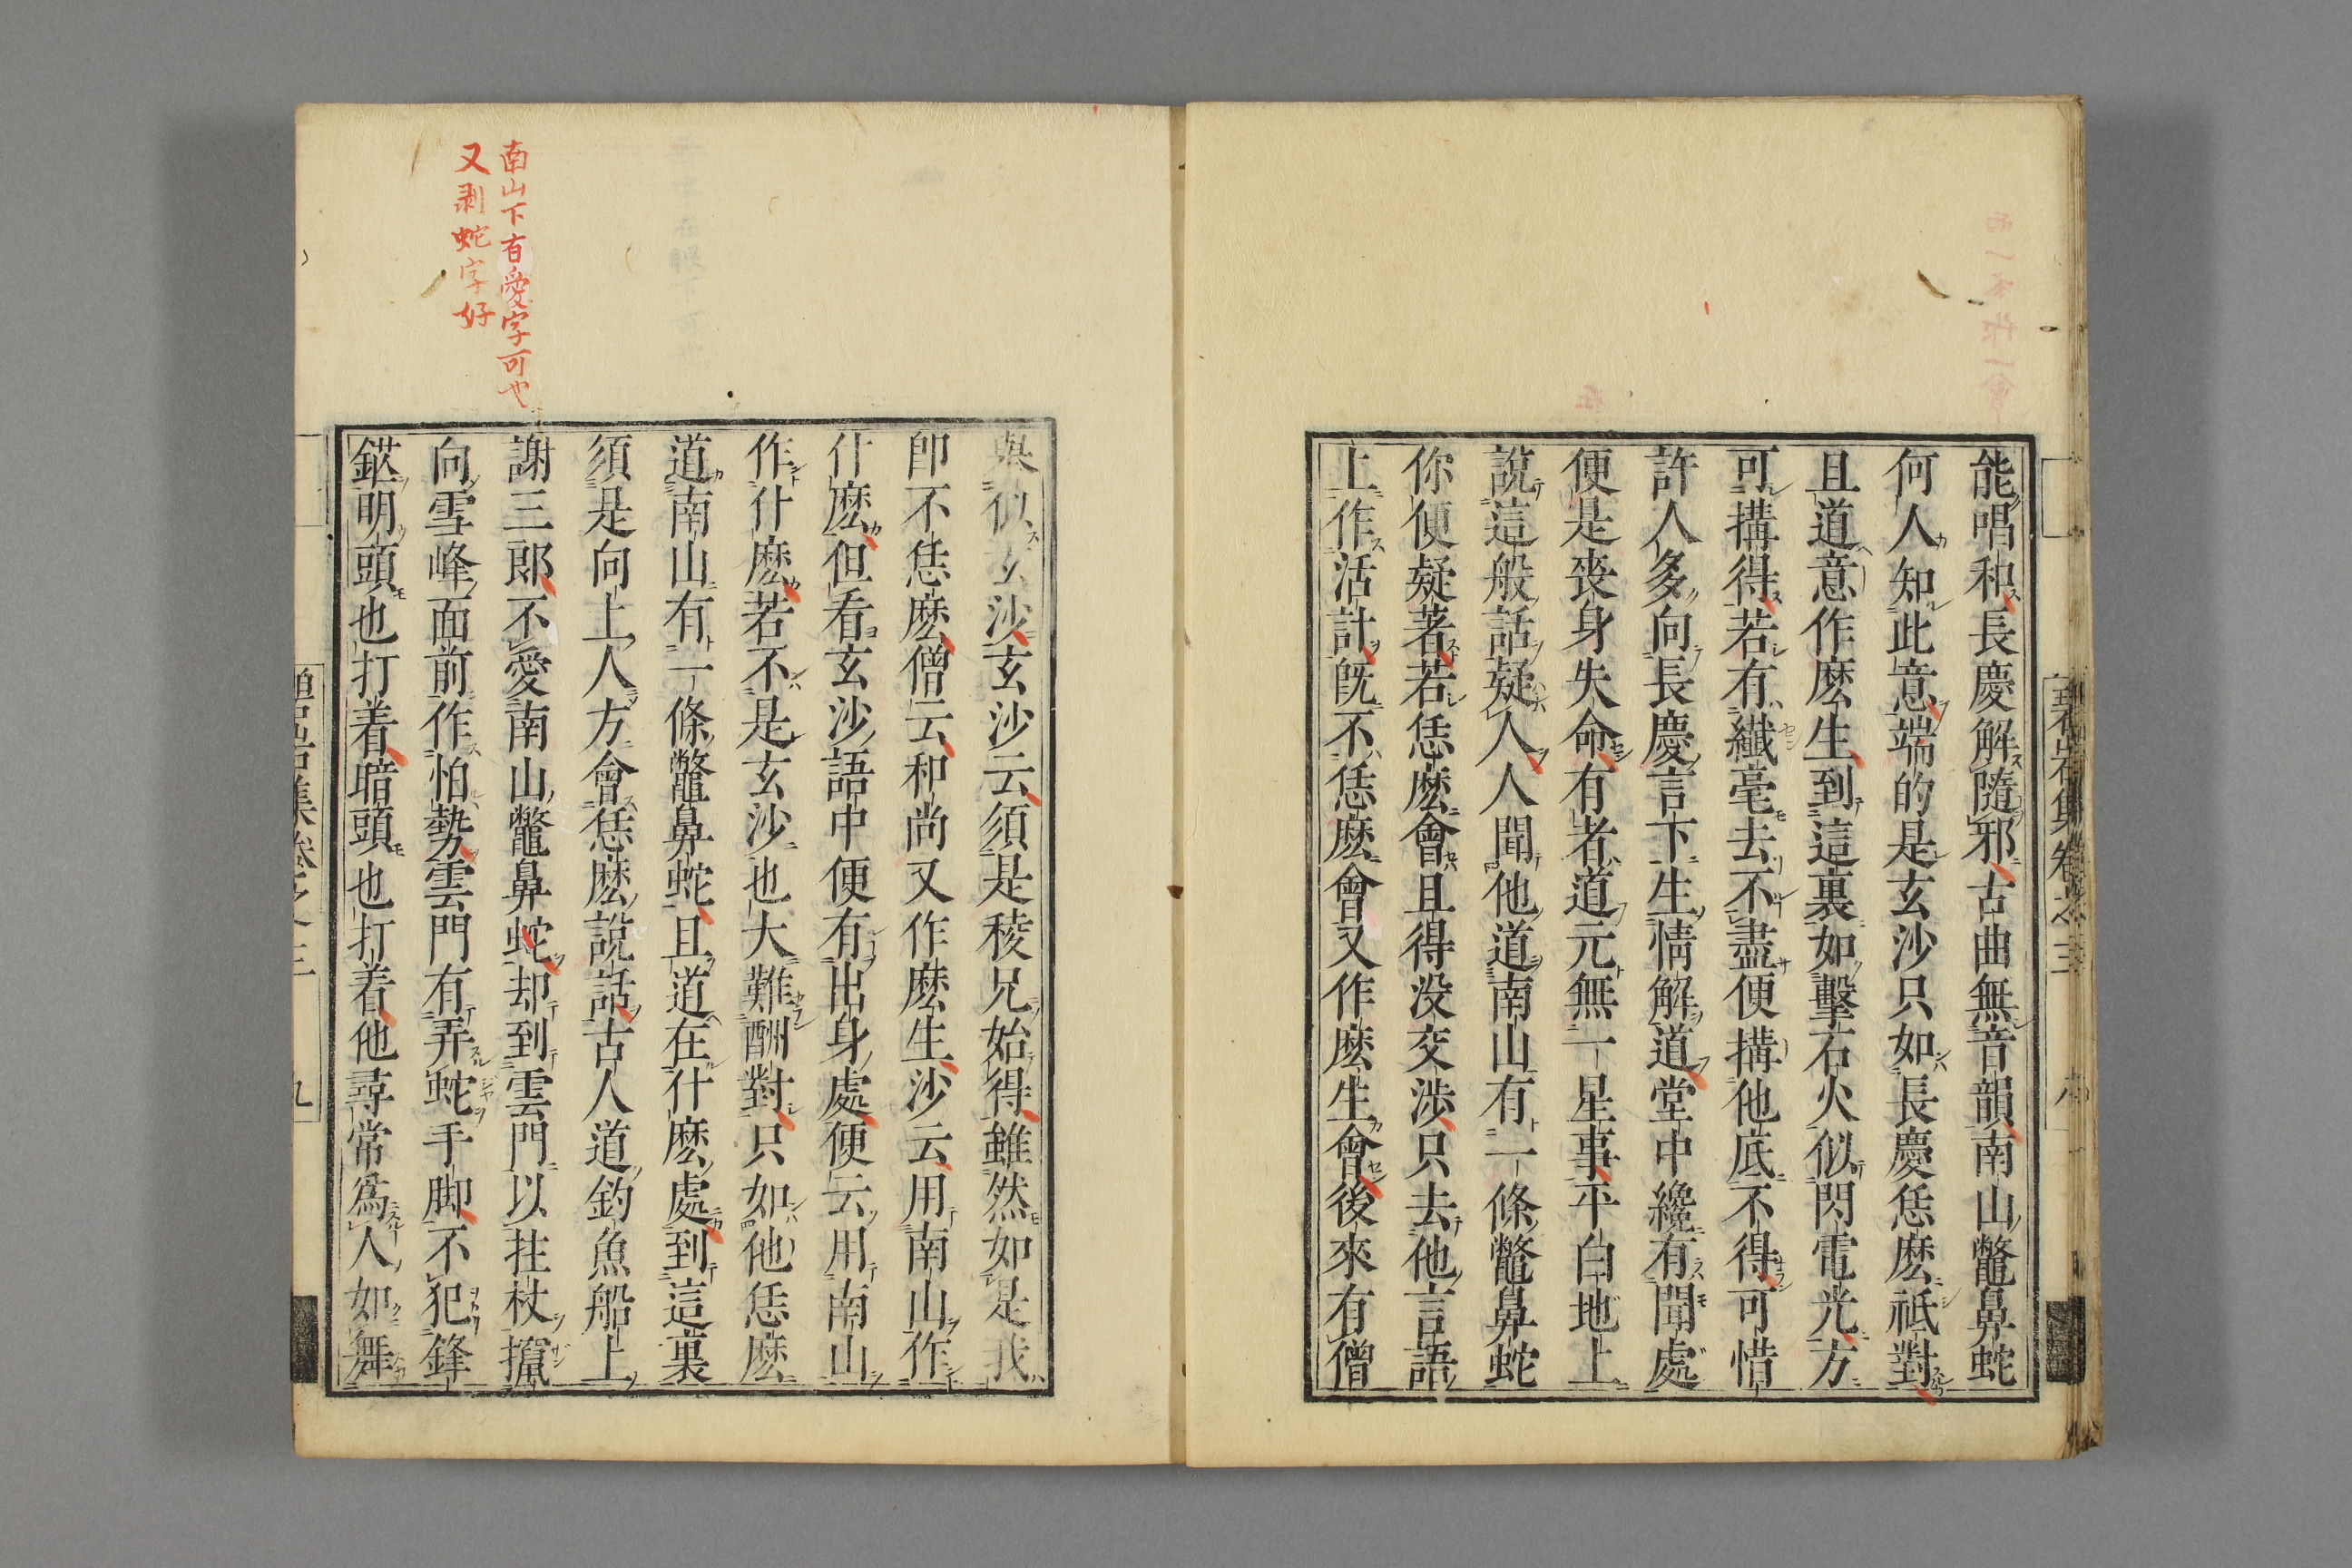 能唱和長慶解隨邪古曲無音韻南山鼈鼻蛇
何人知此意端的是玄沙只如長慶恁麽祗對
且道意作麽生到這裏如擊石火似閃電光方
可搆得若有纖毫去不盡便搆他底不得可惜
許人多向長慶言下生情解道堂中纔有聞處
便是喪身失命有者道元無一星事平白地上
說這般話疑人人聞他道南山有一條鼈鼻蛇
你便疑著若恁麽會且得没交涉只去他言語
上作活計旣不恁麽會又作麽生會後來有僧
碧岩集卷之三 八
南山下有愛字可也
又剥蛇字好
舉似玄沙玄沙云須是稜兄始得雖然如是我
卽不恁麽僧云和尚又作麽生沙云用南山作
什麽但看玄沙語中便有出身處便云用南山
作什麽若不是玄沙也大難酬對只如他恁麽
道南山有一條鼈鼻蛇且道在什麽處到這裏
須是向上人方會恁麽說話古人道釣魚船上
謝三郎不愛南山鼈鼻蛇却到雲門以拄杖攛
向雪峰面前作怕勢雲門有弄蛇手脚不犯鋒
鋩明頭也打着暗頭也打着他尋常爲人如舞
碧岩集卷之三 九